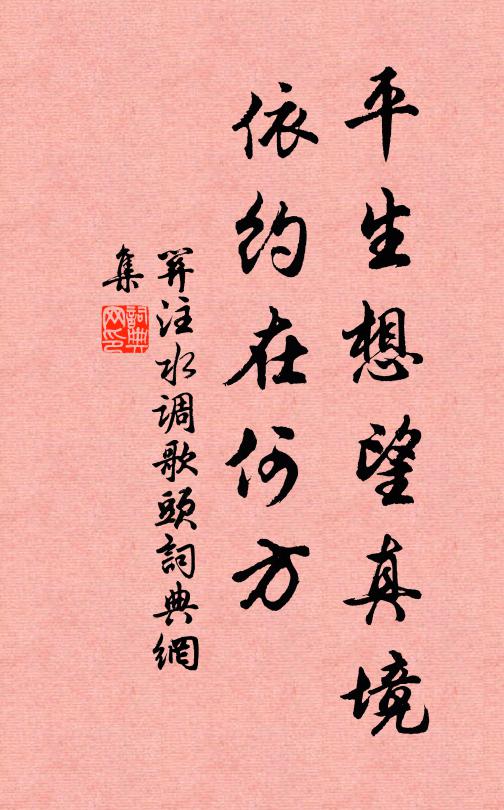 平生想望真境
依约在何方
羿注水调歌頭詞典網
集
詞典网印